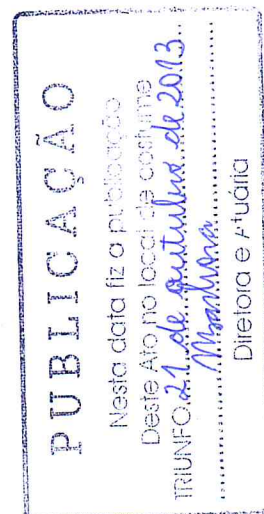 PUBLICAÇÃO
Nesta data fiz a publicação
Deste Ato no local de costume
TRIUNFO, 21 de outubro de 2013
Diretora e Atuária